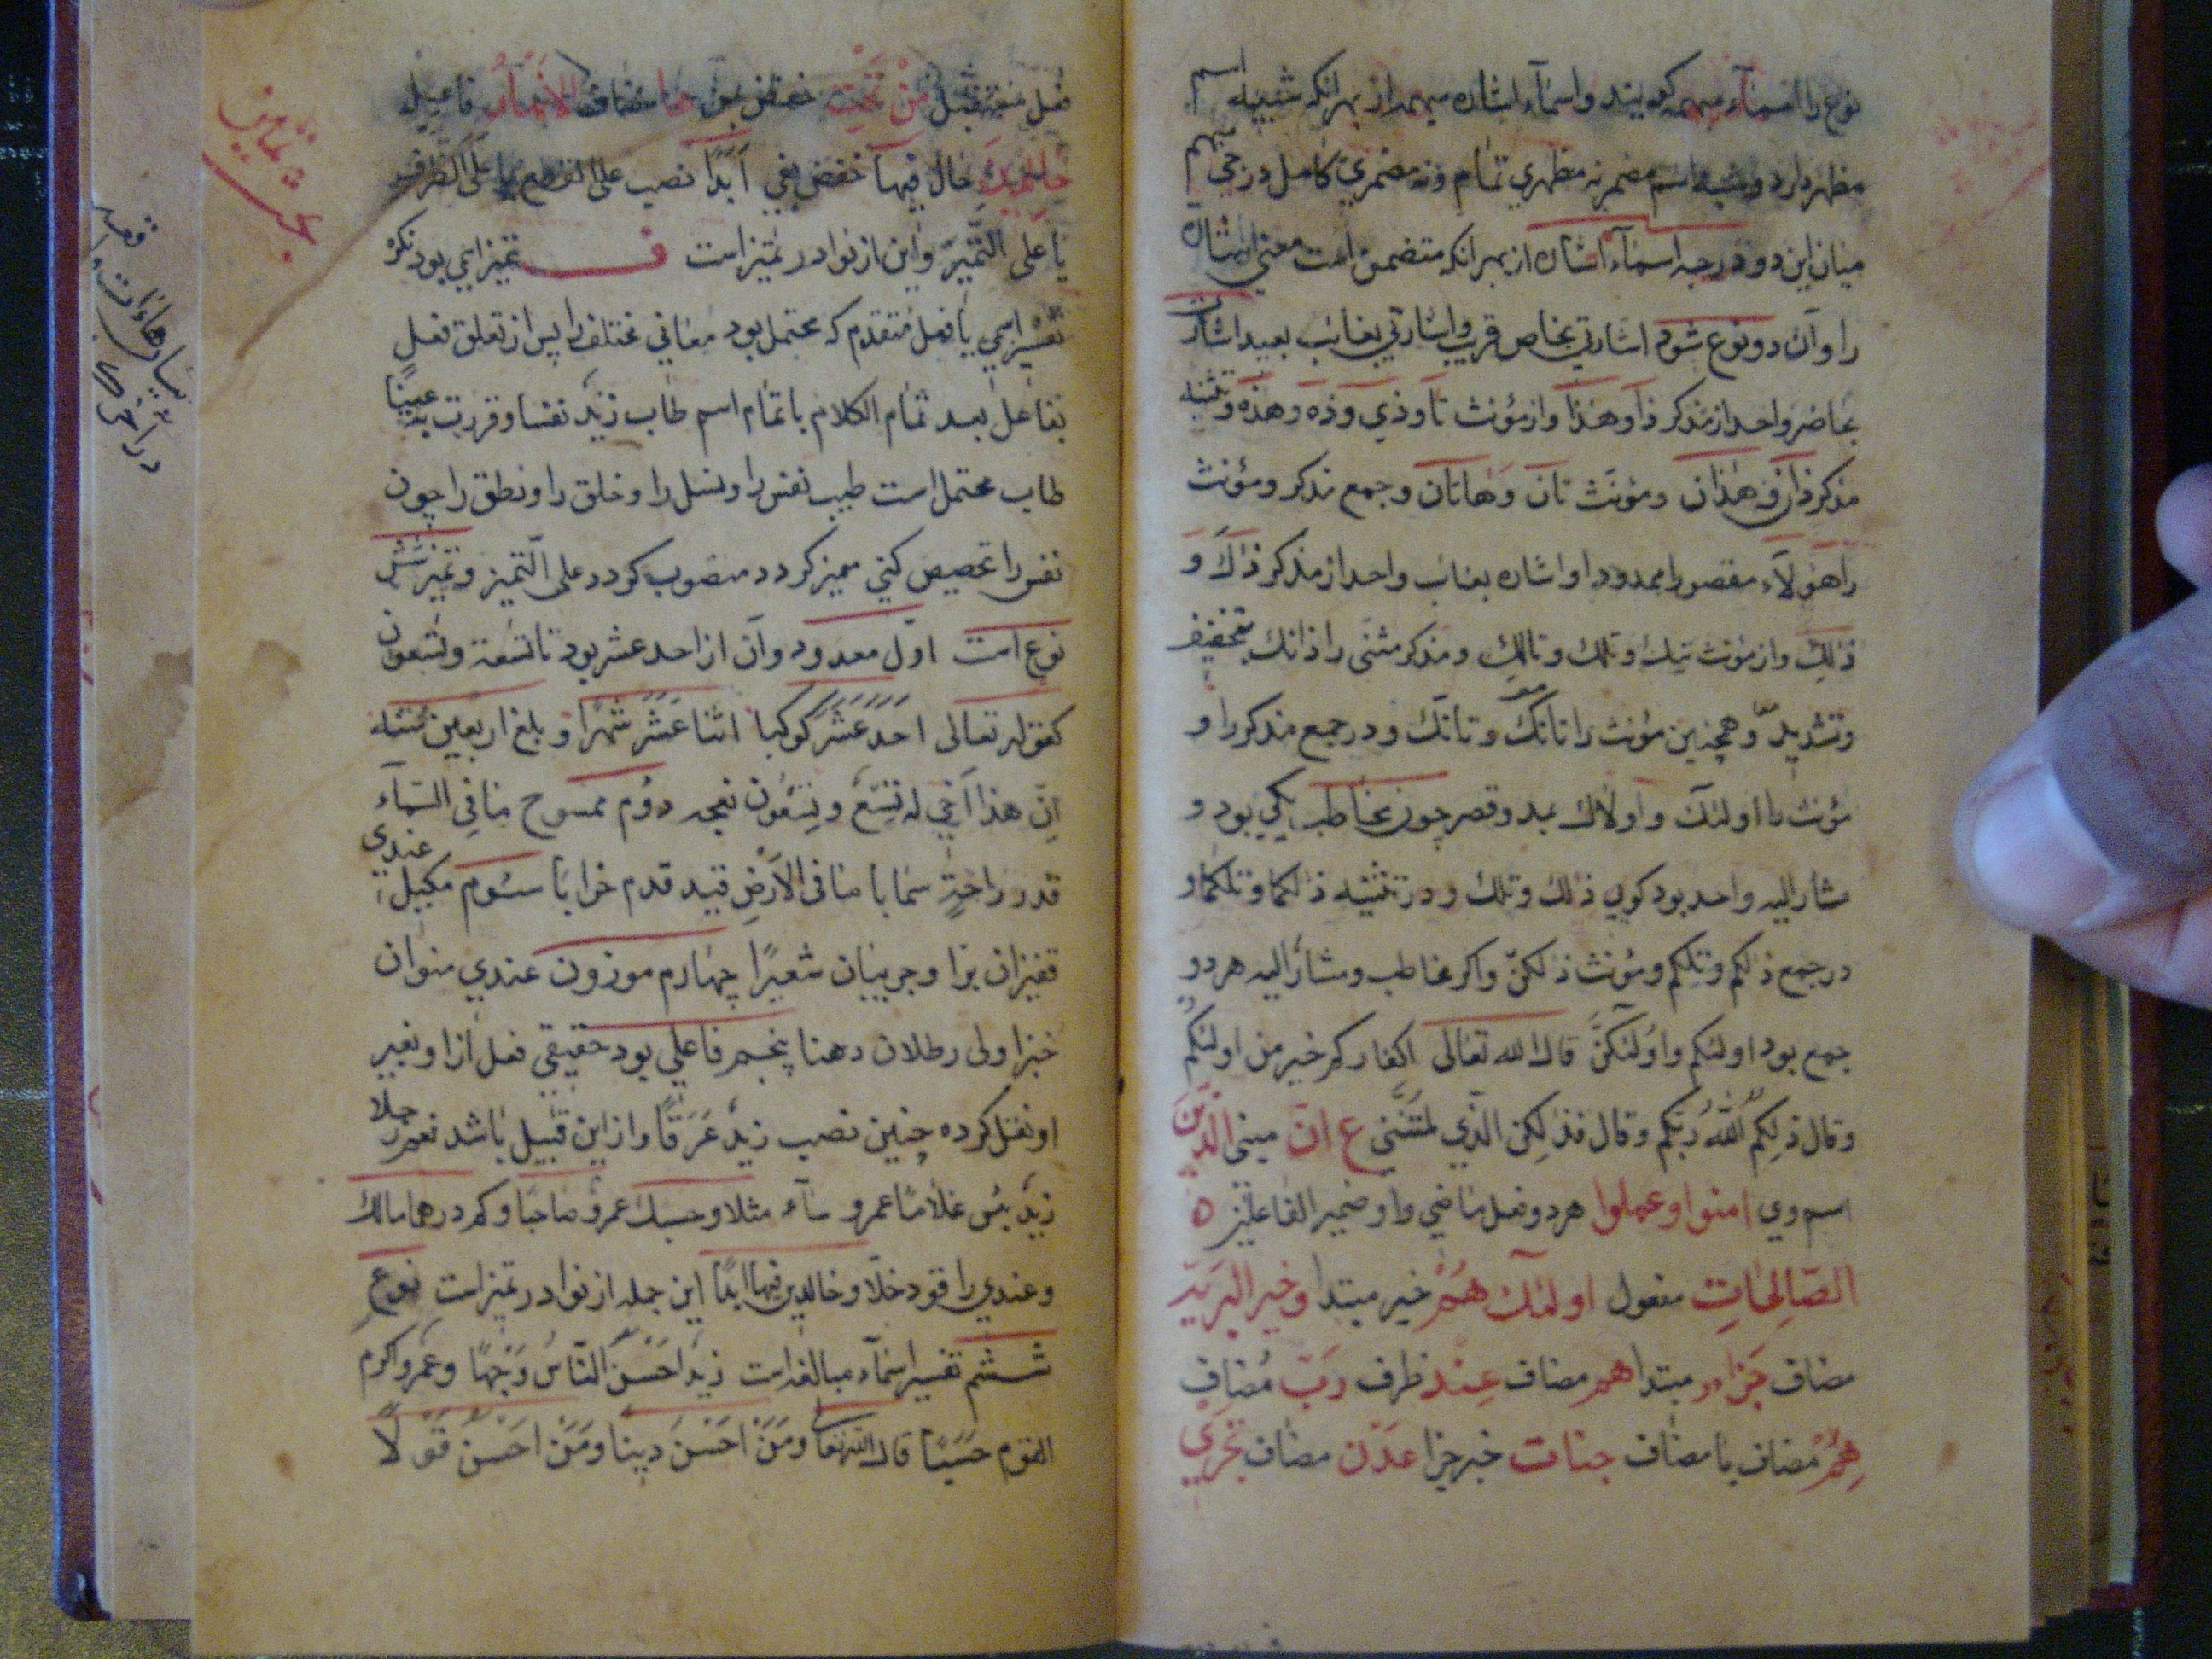 نوع را اسمآء مبهمه کویند واسمآء اشاره مبهمه از بهر آنکه شبیه اسم
مظهر دارد وشبه اسم مضمر نه مظهري تمام ونه مضمري کامل در حي مبهم
میان این دو درجه اسمآء اشاره از بهر آنکه متضمن است معنی اشارة
را وآن دو نوع شود اشارتي بخاص قریب واشارتي بغائب بعید اشارت
بحاضر واحد از مذکر ذا وهذا واز مؤنث تا وذي وذه وهذه وتثنیه
مذکر ذان وهذان ومؤنث تان وهاتان وجمع مذکر ومؤنث
را هؤلآء مقصورا ممدودا واشاره بغائب واحد از مذکر ذاك و
ذلك واز مؤنث تیك وتلك وتالك ومذکر مثنی را ذانك بتخفیف
وتشدید وهمچنین مؤنث را تانك وتانّك ودر جمع مذکر را و
مؤنث را اولئك واولاك بمد وقصر چون مخاطب یکي بود و
مشار الیه واحد بود کوي ذلك وتلك ودر تثنیه ذلکما وتلکما و
در جمع ذلکم وتلکم ومؤنث ذلکنّ واکر مخاطب ومشار الیه هر دو
جمع بود اولئکم واولئکنّ قال الله تعالی اکفارکم خیر من اولئکم
وقال ذلکم الله ربکم وقال فذلکن الذي لمتنني ع ان مبني الذین
اسم وي امنوا وعملوا هر دو فعل ماضي واو ضمیر الفاعلین ه
الصالحات مفعول اولئك هم خیر مبتدا وخبر البریة
مضاف جزاء مبتدا هم مضاف عند ظرف رب مضاف
هم مضاف با مضاف جنات خبر جزا عدن مضاف تجري
فعل مستقبل من تحت خفض بمن ها مضاف الانهار فاعیل
خالدین حال فیها خفض بفي ابدا نصب علی القطع یا علی الظرف
یا علی التمیز واین از نوادر تمیز است ف تمیز اسمي بود نکره
تفسیر اسمي یا فعل متقدم که محتمل بود معاني مختلف را پس از تعلق فعل
بفاعل بعد تمام الکلام یا تمام اسم طاب زید نفسا وقررت به عینا
طاب محتمل است طیب نفس را ونسل را وخلق را ونطق را چون
نفس را تخصیص کني ممیز کردد منصوب کردد علی التمیز وتمیز شش
نوع است اول معدود وآن از احد عشر بود تا تسعة وتسعون
کقوله تعالی احد عشر کوکبا اثنا عشر شهرا وبلغ اربعین سنة
انّ هذا اخي له تسع وتسعون نعجه دوم ممسوح ما في السمآء
قدر راحة سحابا ما في الارض قید قدم خرابا سوم مکیل عندي
قفیزان برا وجریبان شعیرا چهارم موزون عندي منوان
خبزا ولی رطلان دهنا پنجم فاعلي بود حقیقي فعل ازو بغیر
او نقل کرده چنین تصبب زید عرقا واز این قبیل باشد نعم رجلا
زید بئس غلاما عمرو سآء مثلا وحسبك عمرو صاحبا وکم درهما مالك
وعندي راقود خلا وخالدین فیها ابدا این جمله از نوادر تمیز است نوع
ششم تفسیر اسمآء مبالغه است زید احسن الناس وجها وعمرو اکرم
القوم حسبا قال الله تعا ومن احسن دینا ومن احسن قولا